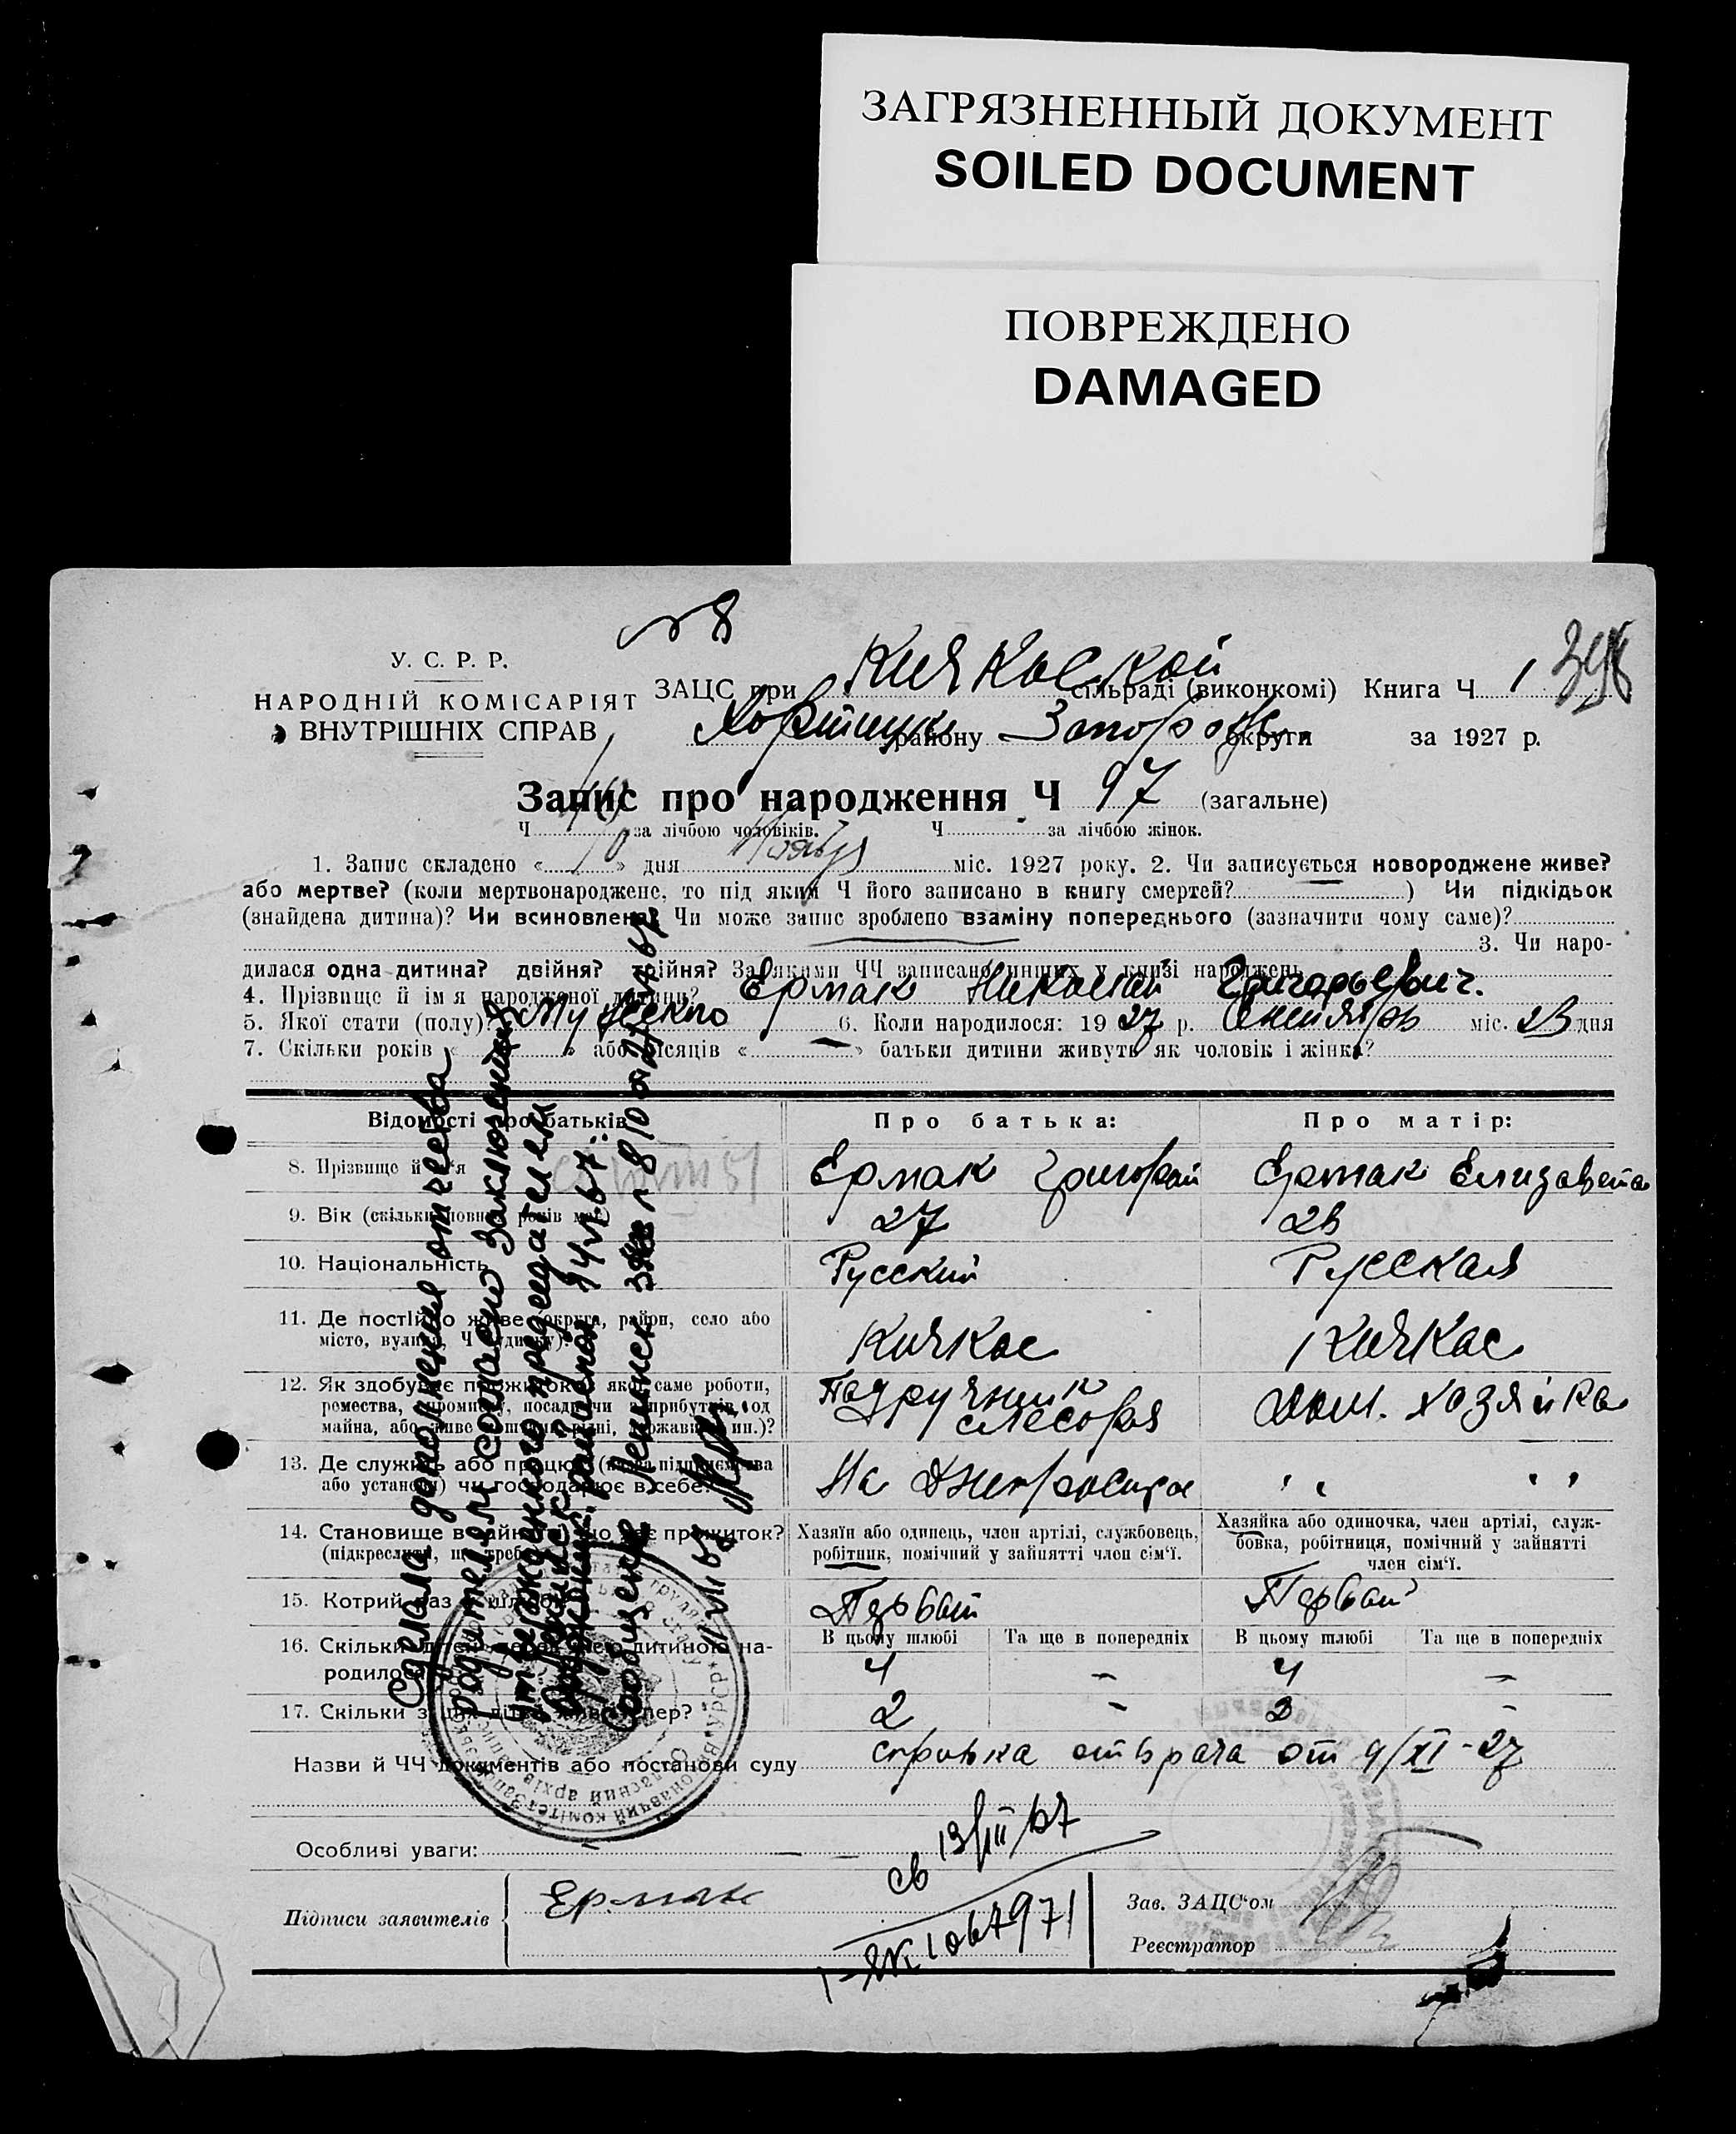 ЗАГРЯЗНЕННЫЙ ДОКУМЕНТ
SOILED DOCUMENT
ПОВРЕЖДЕНО
DAMAGED
№ 8
У. С. Р. Р.
НАРОДНІЙ КОМІСАРІЯТ
ВНУТРІШНІХ СПРАВ
ЗАЦС при Кичкаской сільраді (виконкомі) Книга Ч 1
Хортицк району Запорож. округи за 1927 р.
Запис про народження Ч 97 (загальне)
Ч за лічбою чоловіків. Ч за лічбою жінок.
1. Запис складено « 10 » дня Ноября міс. 1927 року. 2. Чи записується новороджене живе?
або мертве? (коли мертвонароджене, то під яким Ч його записано в книгу смертей? ) Чи підкідьок
(знайдена дитина)? Чи всиновлена? Чи може запис зроблено взаміну попереднього (зазначити чому саме)?
3. Чи наро-
дилася одна дитина? двійня? трійня? За якими ЧЧ записано инших у книзі народжень
4. Прізвище й ім я народженої дитини? Ермак Николай Григорьевич.
5. Якої стати (полу)? Мужского 6. Коли народилося: 19 27 р. Октября міс. 23 дня
7. Скільки років « » або місяців « — » батьки дитини живуть як чоловік і жінка?
Відомості про батьків Про батька: Про матір:
8. Прізвище й ім'я Ермак Григорий Ермак Елизавета
9. Вік (скільки повних років має) 27 23
10. Національність Русский Русская
11. Де постійно живе (округа, район, село або
місто, вулиця, Ч будинку)? Кичкас Кичкас
12. Як здобуває прожиток (якої саме роботи,
ремества, промислу, посади чи з прибутків од
майна, або живе коштом рідні, держави й ин.)? Подручник слесаря Дом. хозяйка
13. Де служить або працює (назва підприємства
або установи) чи господарює в себе? На Днепрострое " "
14. Становище в занятті, що дає прожиток?
(підкреслити, що треба)
Хазяїн або одинець, член артілі, службовець,
робітник, помічний у зайнятті член сім'ї.
Хазяйка або одиночка, член артілі, служ-
бовка, робітниця, помічний у зайнятті
член сім'ї.
15. Котрий раз у шлюбі Первый Первый
16. Скільки дітей перед цією дитиною на-
родилося
В цьому шлюбі Та ще в попередніх В цьому шлюбі Та ще в попередніх
4 – 4 –
17. Скільки з цих дітей живе тепер? 2 – 2 –
Назви й ЧЧ документів або постанови суду справка от врача от 9/XI-27
Особливі уваги:
св 13/III/67
I-ЯК 1067971
Підписи заявителів Ермак
Зав. ЗАЦС'ом
Реєстратор
Сделала дополнения отчества
родителей согласно Заключения
утвержденного председателем